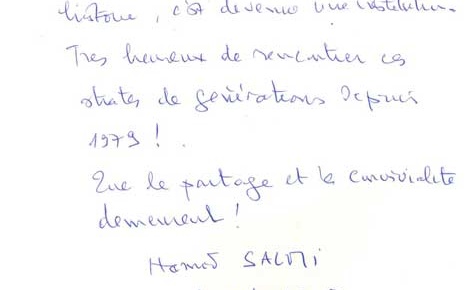 histoire, c'est devenu une institution.
Très heureux de rencontrer ces
strates de générations depuis
1979 !
Que le partage et la convivialité
demeurent !
Hamid SALMI